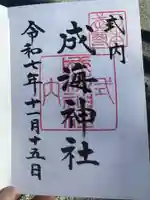 式内
成海神社
令和七年十一月十五日